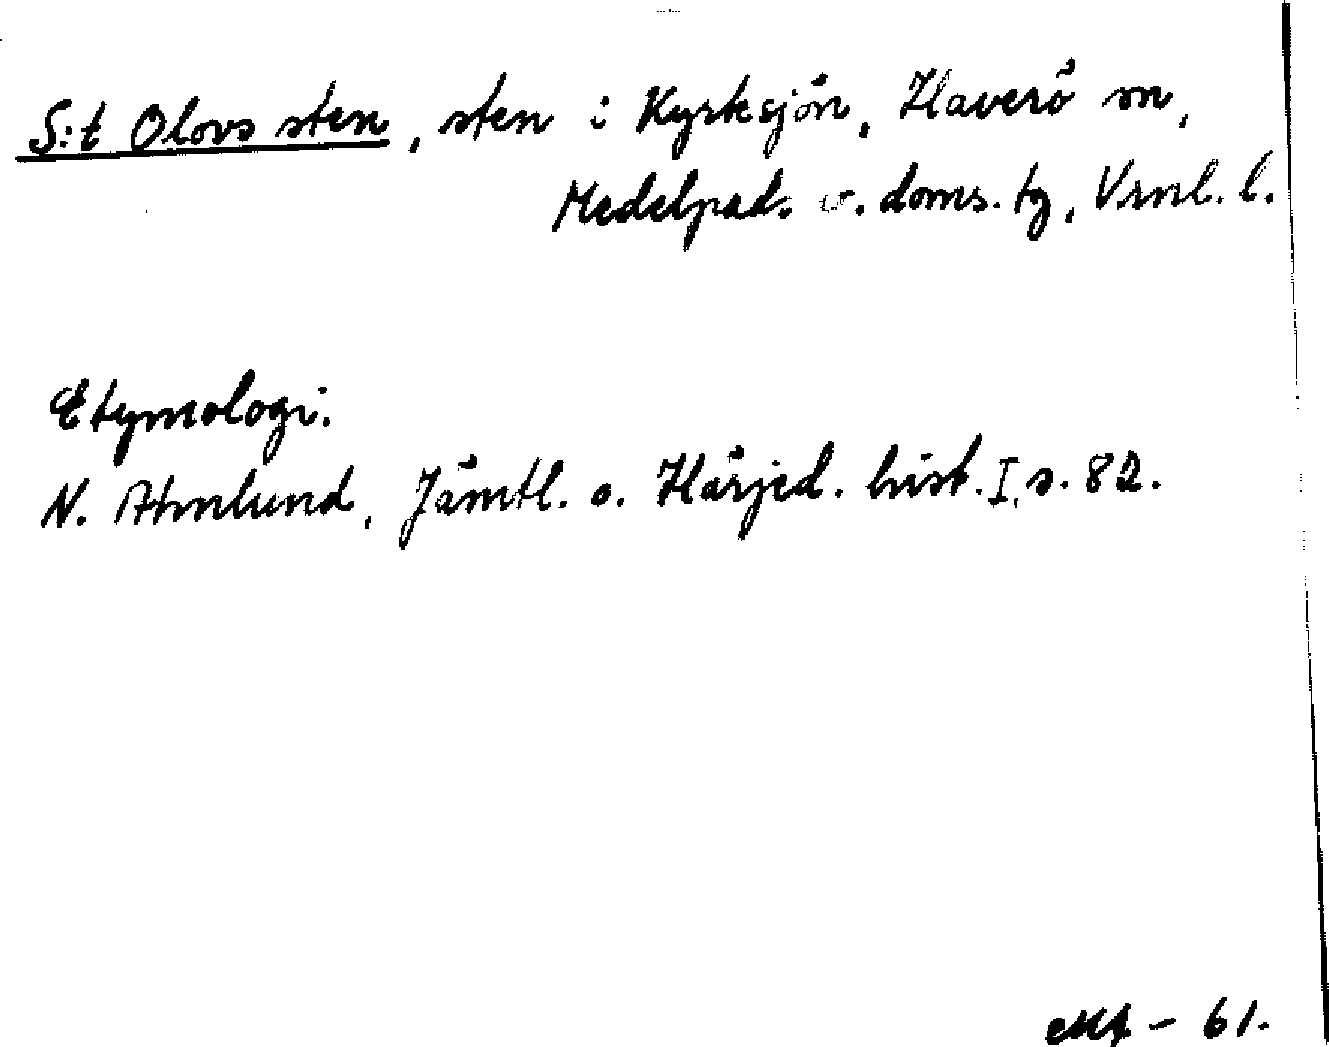 S:t Olovs sten, sten i Kyrksjön, Haverö sn,
Medelpad. v. doms. tg, Vrnl. l.
Etymologi.
N. Ahnlund, Jämtl. o. Härjed. hist. I, s. 82.
- 61.